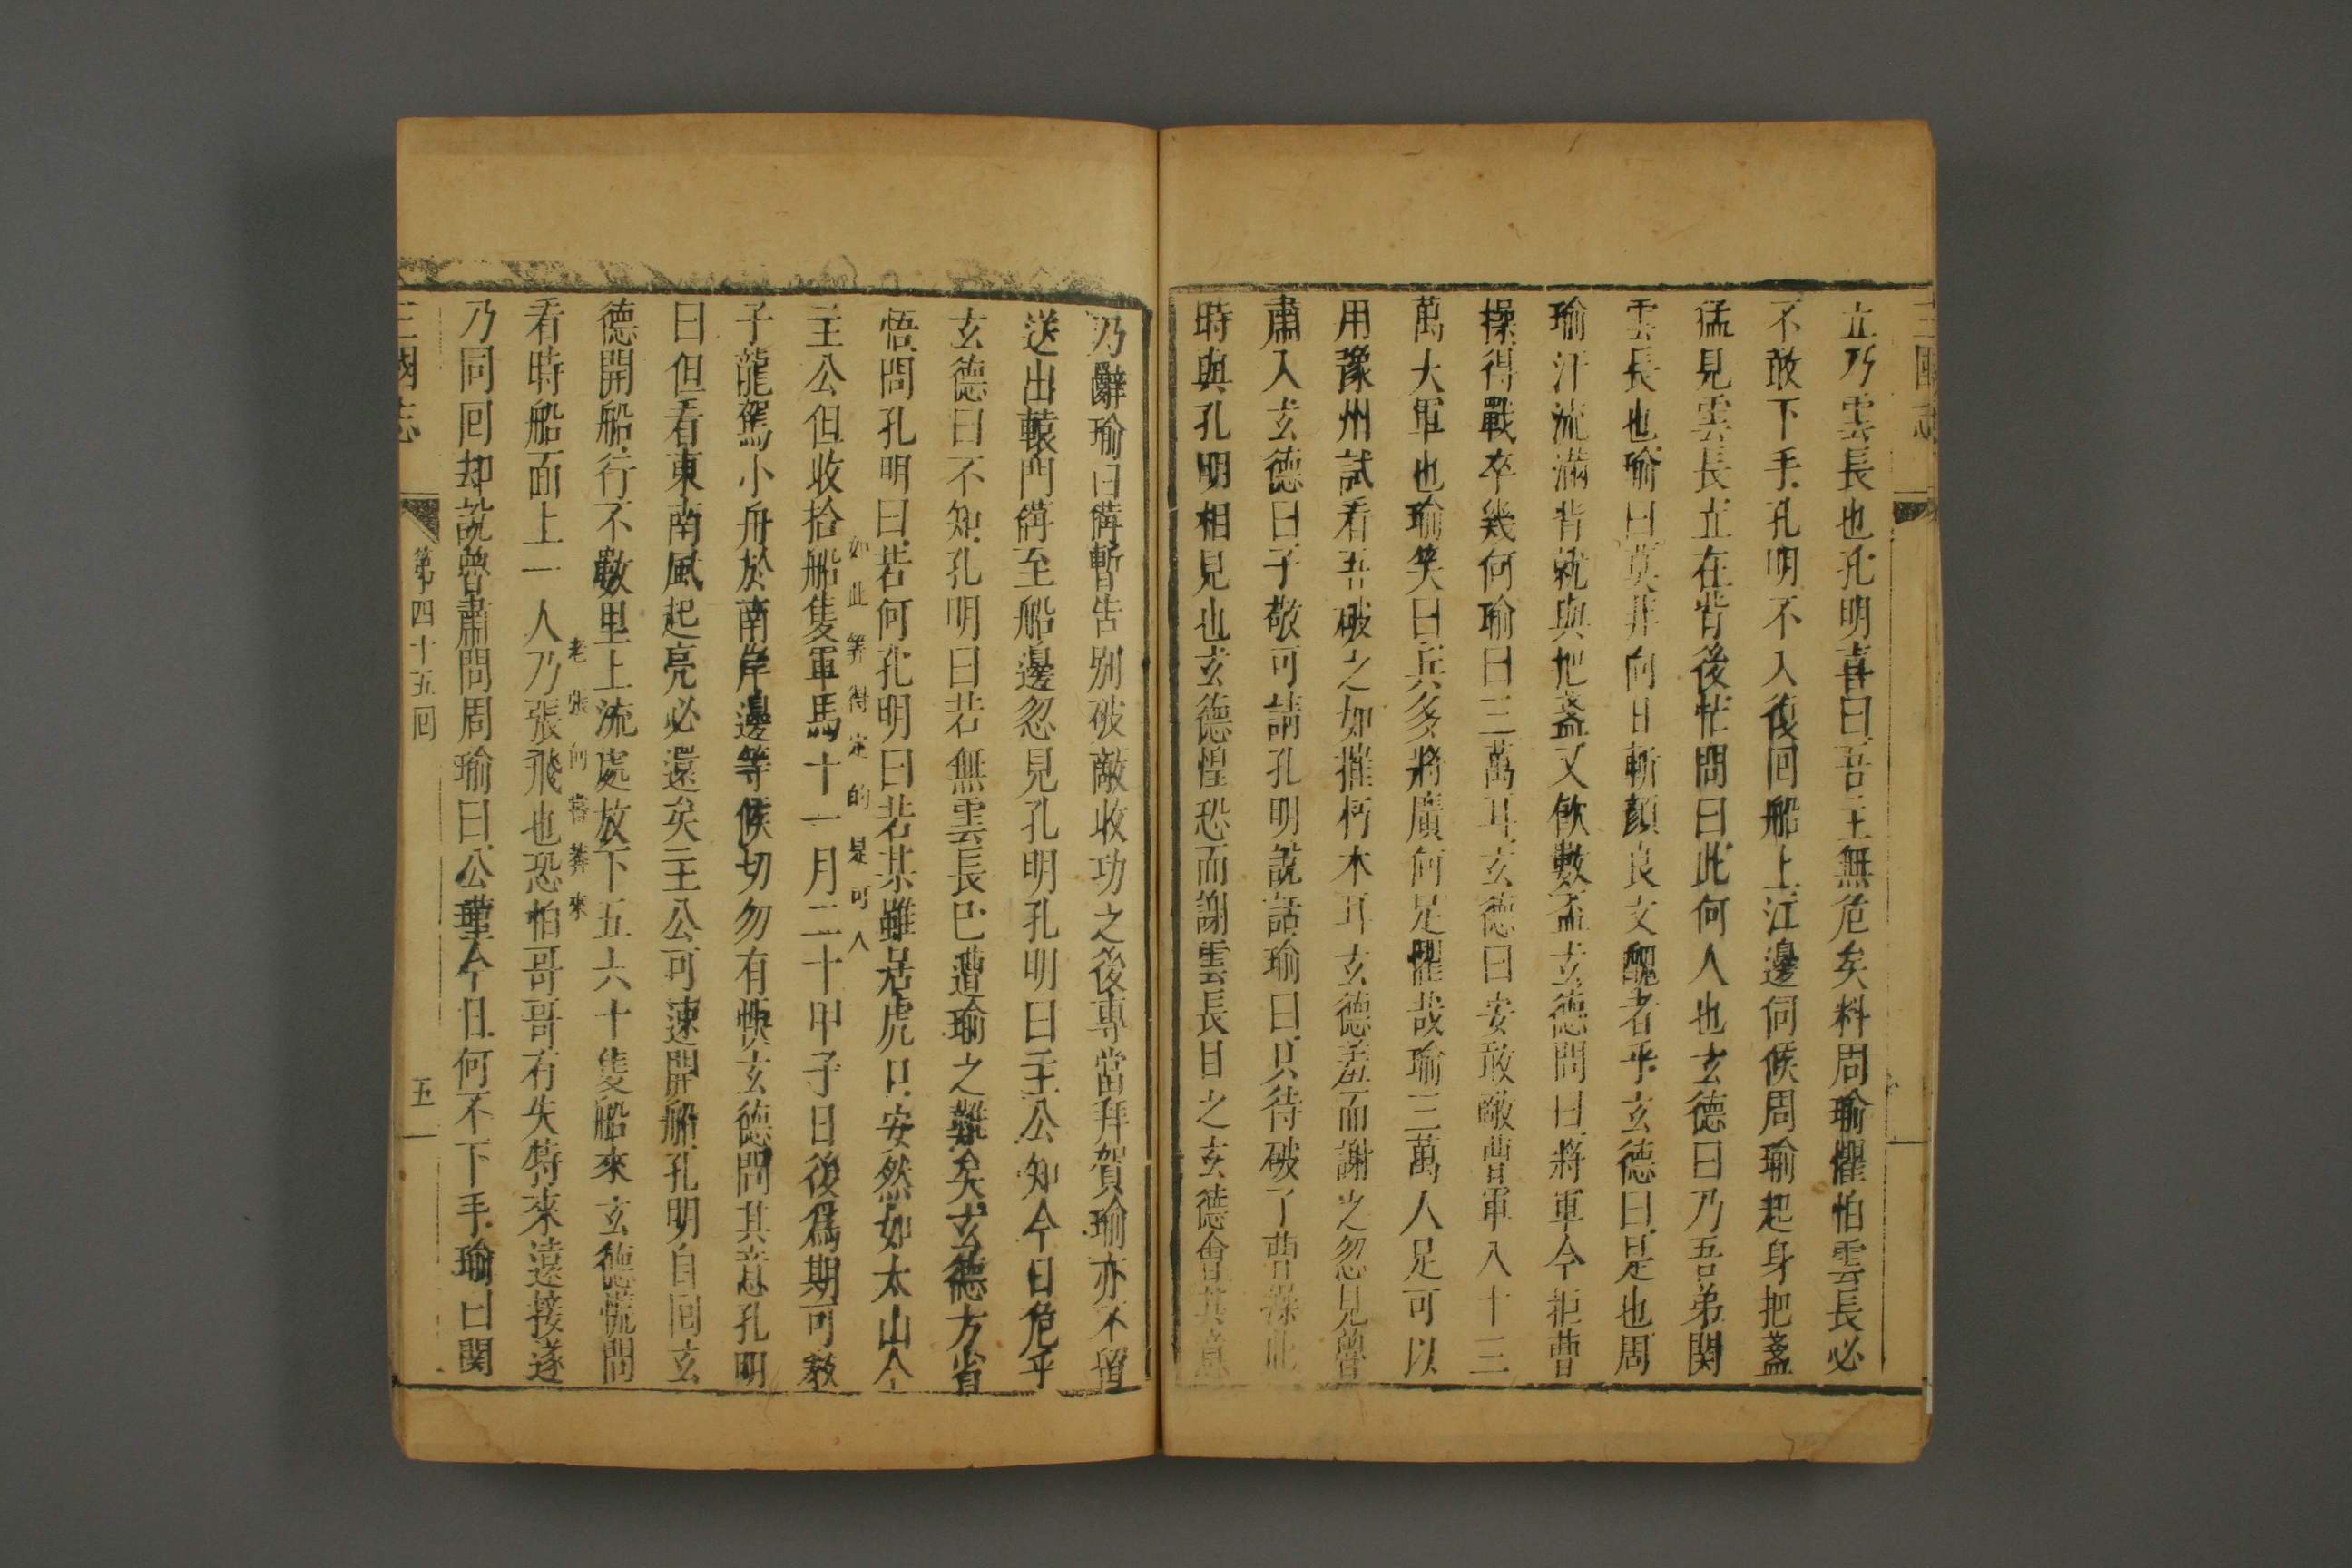 立乃雲長也孔明喜曰吾主無危矣料周瑜懼怕雲長必
不敢下手孔明不入復回船上江邊伺候周瑜起身把盞
猛見雲長立在背後忙問曰此何人也玄德曰乃吾弟関
雲長也瑜曰莫非向日斬顏良文醜者乎玄德曰是也周
瑜汗流滿背就與把盞又飲數盃玄德問曰將軍今拒曹
操得戰卒幾何瑜曰三萬耳玄德曰安敢敵曹軍八十三
萬大軍也瑜笑曰兵多將廣何足懼哉瑜三萬人足可以
用豫州試看吾破之如摧朽木耳玄德羞而謝之忽見魯
肅入玄德曰子敬可請孔明說話瑜曰只待破了曹操此
時與孔明相見也玄德惶恐而謝雲長目之玄德會其意
乃辭瑜曰備暫告別破敵收功之後專當拜賀瑜亦不留
送出轅門備至船邊忽見孔明孔明曰主公知今日危乎
玄德曰不知孔明曰若無雲長巳遭瑜之難矣玄德方省
悟問孔明曰若何孔明曰若某雖居虎口安然如太山今
如此筭得定的是可人
主公但收拾船隻軍馬十一月二十甲子日後爲期可教
子龍駕小舟於南岸邊等候切勿有悞玄德問其意孔明
曰但看東南風起亮必還矣主公可速開船孔明自回玄
德開船行不數里上流處放下五六十隻船來玄德慌問
老張何嘗莽來
看時船面上一人乃張飛也恐怕哥哥有失特來遠接遂
乃同回却說魯肅問周瑜曰公瑾今日何不下手瑜曰関
三國志
第四十五回
五